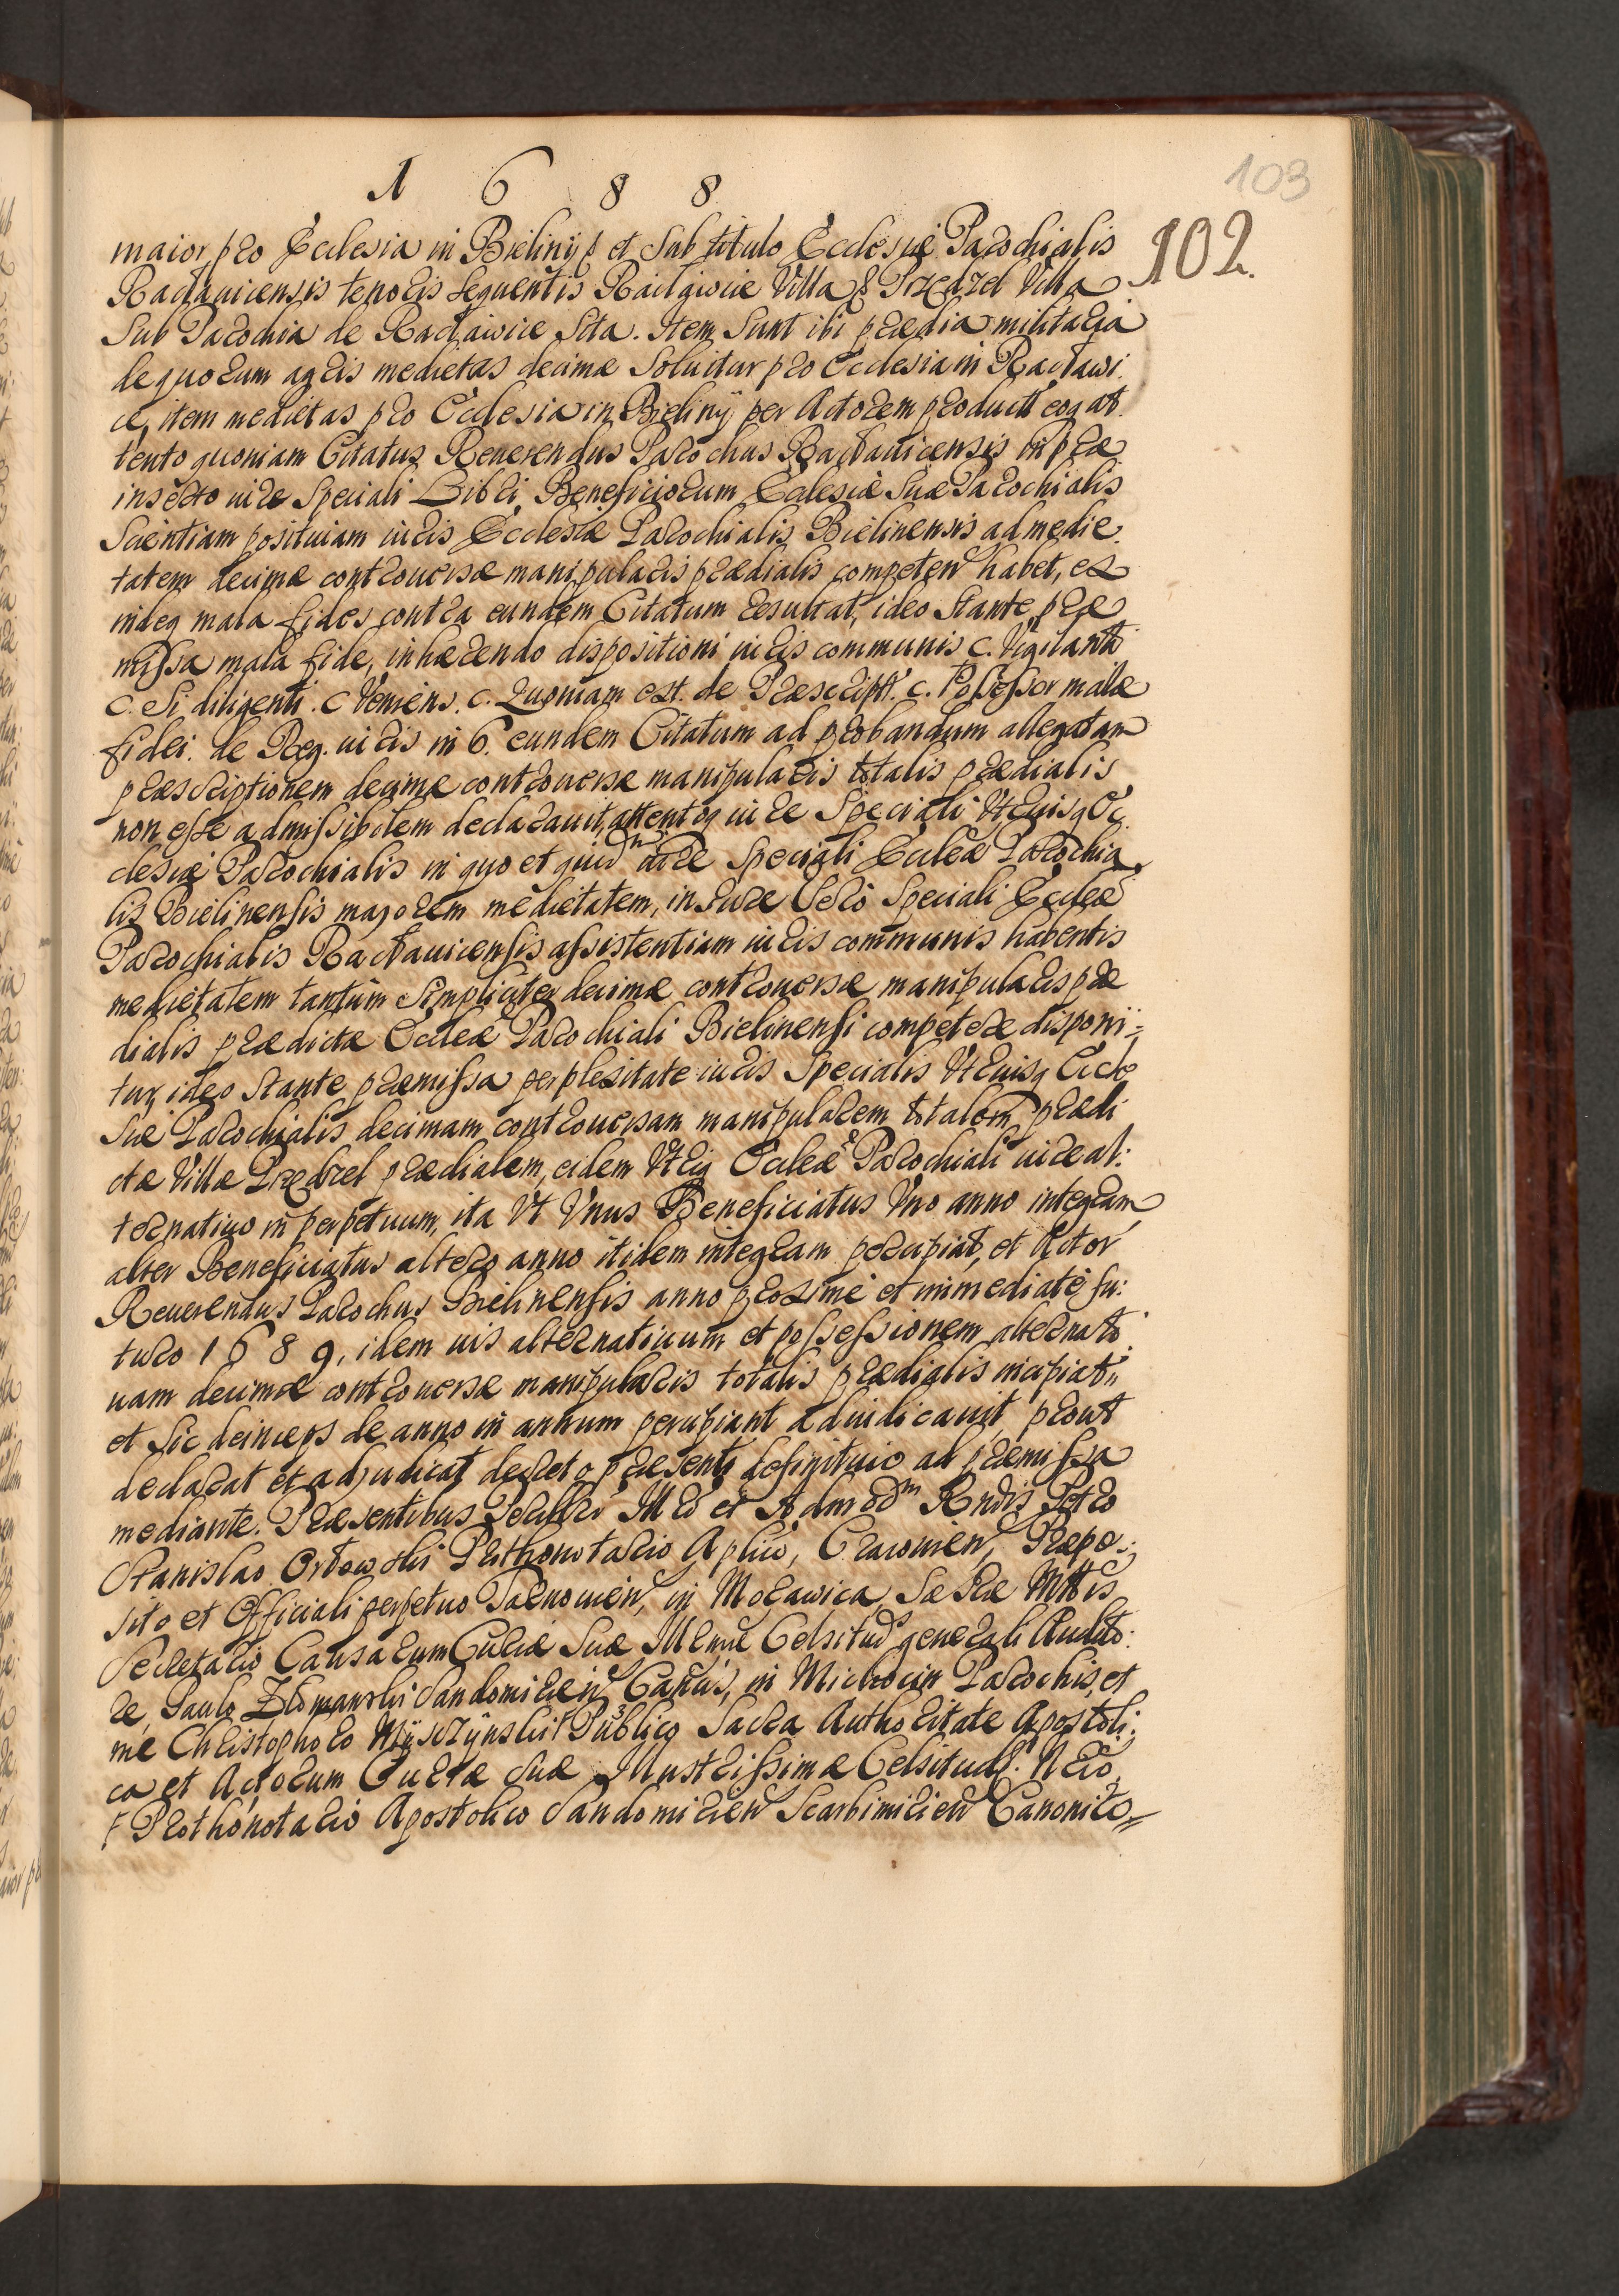 1 6 8 8
103
102.
maior pro Ecclesia in Bieliny, et Sub titulo Ecclesiæ Parochialis
Racłauicensis tenoris sequentis Racławice Villa & Przędzel Villa
Sub Parochia de Racławice Sita. Item Sunt ibi prædia militaria
de quorum agris medietas decimæ Soluitur pro Ecclesia in Racławi:
ce, item medietas pro Ecclesia in Bieliny per Actorem product eoq at
tento quoniam Citatus Reuerendus Parochus Racłauicensis in præ
inserto iure Speciali Libri Beneficiorum Ecclesiæ Suæ Parochialis
Scientiam positiuam iuris Ecclesiæ Parochialis Bielinensis ad medie
tatem decimæ controuersæ manipularis prædialis competen habet, ex
indeq mala fides contra eundem Citatum resultat, ideo Stante præ
missa mala fide, inhærendo dispositioni iuris communis c. Vigilanti
c. Si diligenti. c Veniens. c. Quoniam est. de Præscript. c. Possessor malæ
fidei. de Reg. iuris in 6. eundem Citatum ad probandum allegatam
præscriptionem decimæ controuersæ manipularis totalis prædialis
non esse admissibilem declarauit, attentoq iure Speciali Vtriusq Ec
clesiæ Parochialis in quo et quidm iure Speciali Eccleæ Parochia
lis Bielinensis majorem medietatem, in Iure Vero Speciali Eccleæ
Parochialis Racłauicensis assistentiam iuris communis habentis
medietatem tantùm Simpliciter decimæ controuersæ manipularis præ
dialis prædictæ Eccleæ Parochiali Bielinensi competere disponi=
tur, ideo Stante præmissa perplexitate iuris Specialis Vtriusq Eccle
siæ Parochialis decimam controuersam manipularem totalem prædi
ctæ Villæ Przędzel prædialem, eidem Vtriq Eccleæ Parochiali iure al:
ternatiuo in perpetuum, ita Vt Vnus Beneficiatus Vno anno integram
alter Beneficiatus altero anno itidem integram percipiat, et Actor
Reuerendus Parochus Bielinensis anno proximè et immediatè fu:
turo 1689, idem ius alternatiuum et possessionem alternati
uam decimæ controuersæ manipularis totalis prædialis incipiat,
et Sic deinceps de anno in annum percipiant adiudicauit, prout
declarat et adjudicat decreto præsenti definitiuo ad præmissa
mediante. Præsentibus Perillri Mro et Adm Rdm Rndis Petro
Stanislao Orłowski Prothonotario Aplico, Cracouien, Præpo:
sito et Officiali perpetuo Tarnouien, in Mokrawica, Sacræ Mttis
Secretario Causarum Curiæ Suæ Illmæ Celsitud generali Audito:
re, Paulo Złomanski Sandomirien Canco, in Michocin Parochis, et
me Christophoro Myszczynski Ɨ Publico Sacra Authoritate Apostoli:
ca et Actorum Curiæ Suæ Illustrissimæ Celsitud. Nrio,
Ɨ Prothonotario Apostolico Sandomirien Scarbimirien Canonico